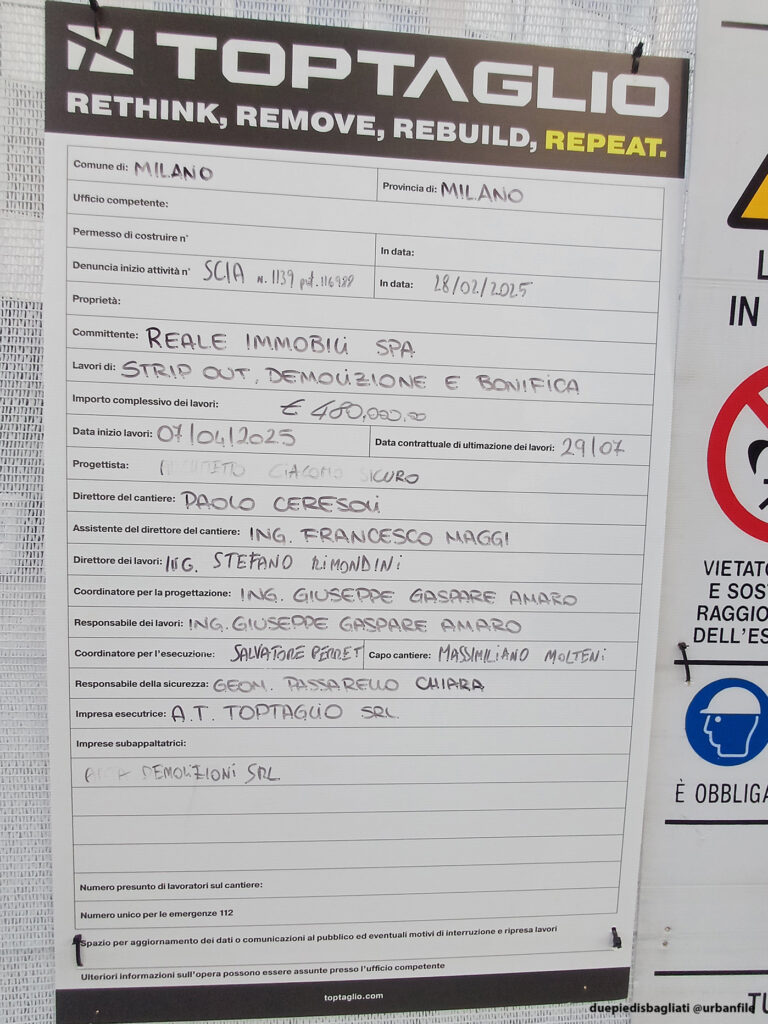 TOPTAGLIO
RETHINK, REMOVE, REBUILD, REPEAT.
Comune di: MILANO Provincia di: MILANO
Ufficio competente:
Permesso di costruire n° In data:
Denuncia inizio attività n° SCIA N. 1139 In data: 28/02/2025
Proprietà:
Committente: REALE IMMOBILI SPA
Lavori di: STRIP OUT, DEMOLIZIONE E BONIFICA
Importo complessivo dei lavori: € 480,000.00
Data inizio lavori: 07/04/2025 Data contrattuale di ultimazione dei lavori: 29/07
Progettista: GIACOMO SICURO
Direttore del cantiere: PAOLO CERESOLI
Assistente del direttore del cantiere: ING. FRANCESCO MAGGI
Direttore dei lavori: ING. STEFANO RIMONDINI
Coordinatore per la progettazione: ING. GIUSEPPE GASPARE AMARO
Responsabile dei lavori: ING. GIUSEPPE GASPARE AMARO
Coordinatore per l'esecuzione: SALVATORE PERRET Capo cantiere: MASSIMILIANO MOLTENI
Responsabile della sicurezza: GEOM. PASSARELLO CHIARA
Impresa esecutrice: A.T. TOPTAGLIO SRL.
Imprese subappaltatrici:
DEMOLIZIONI SRL
Numero presunto di lavoratori sul cantiere:
Numero unico per le emergenze 112
Spazio per aggiornamento dei dati o comunicazioni al pubblico ed eventuali motivi di interruzione e ripresa lavori
Ulteriori informazioni sull'opera possono essere assunte presso l'ufficio competente
toptaglio.com
L
IN
VIETATO
E SOS
RAGGIO
DELL'ES
È OBBLIGA
TU
duepiedisbagliati @urbanfile